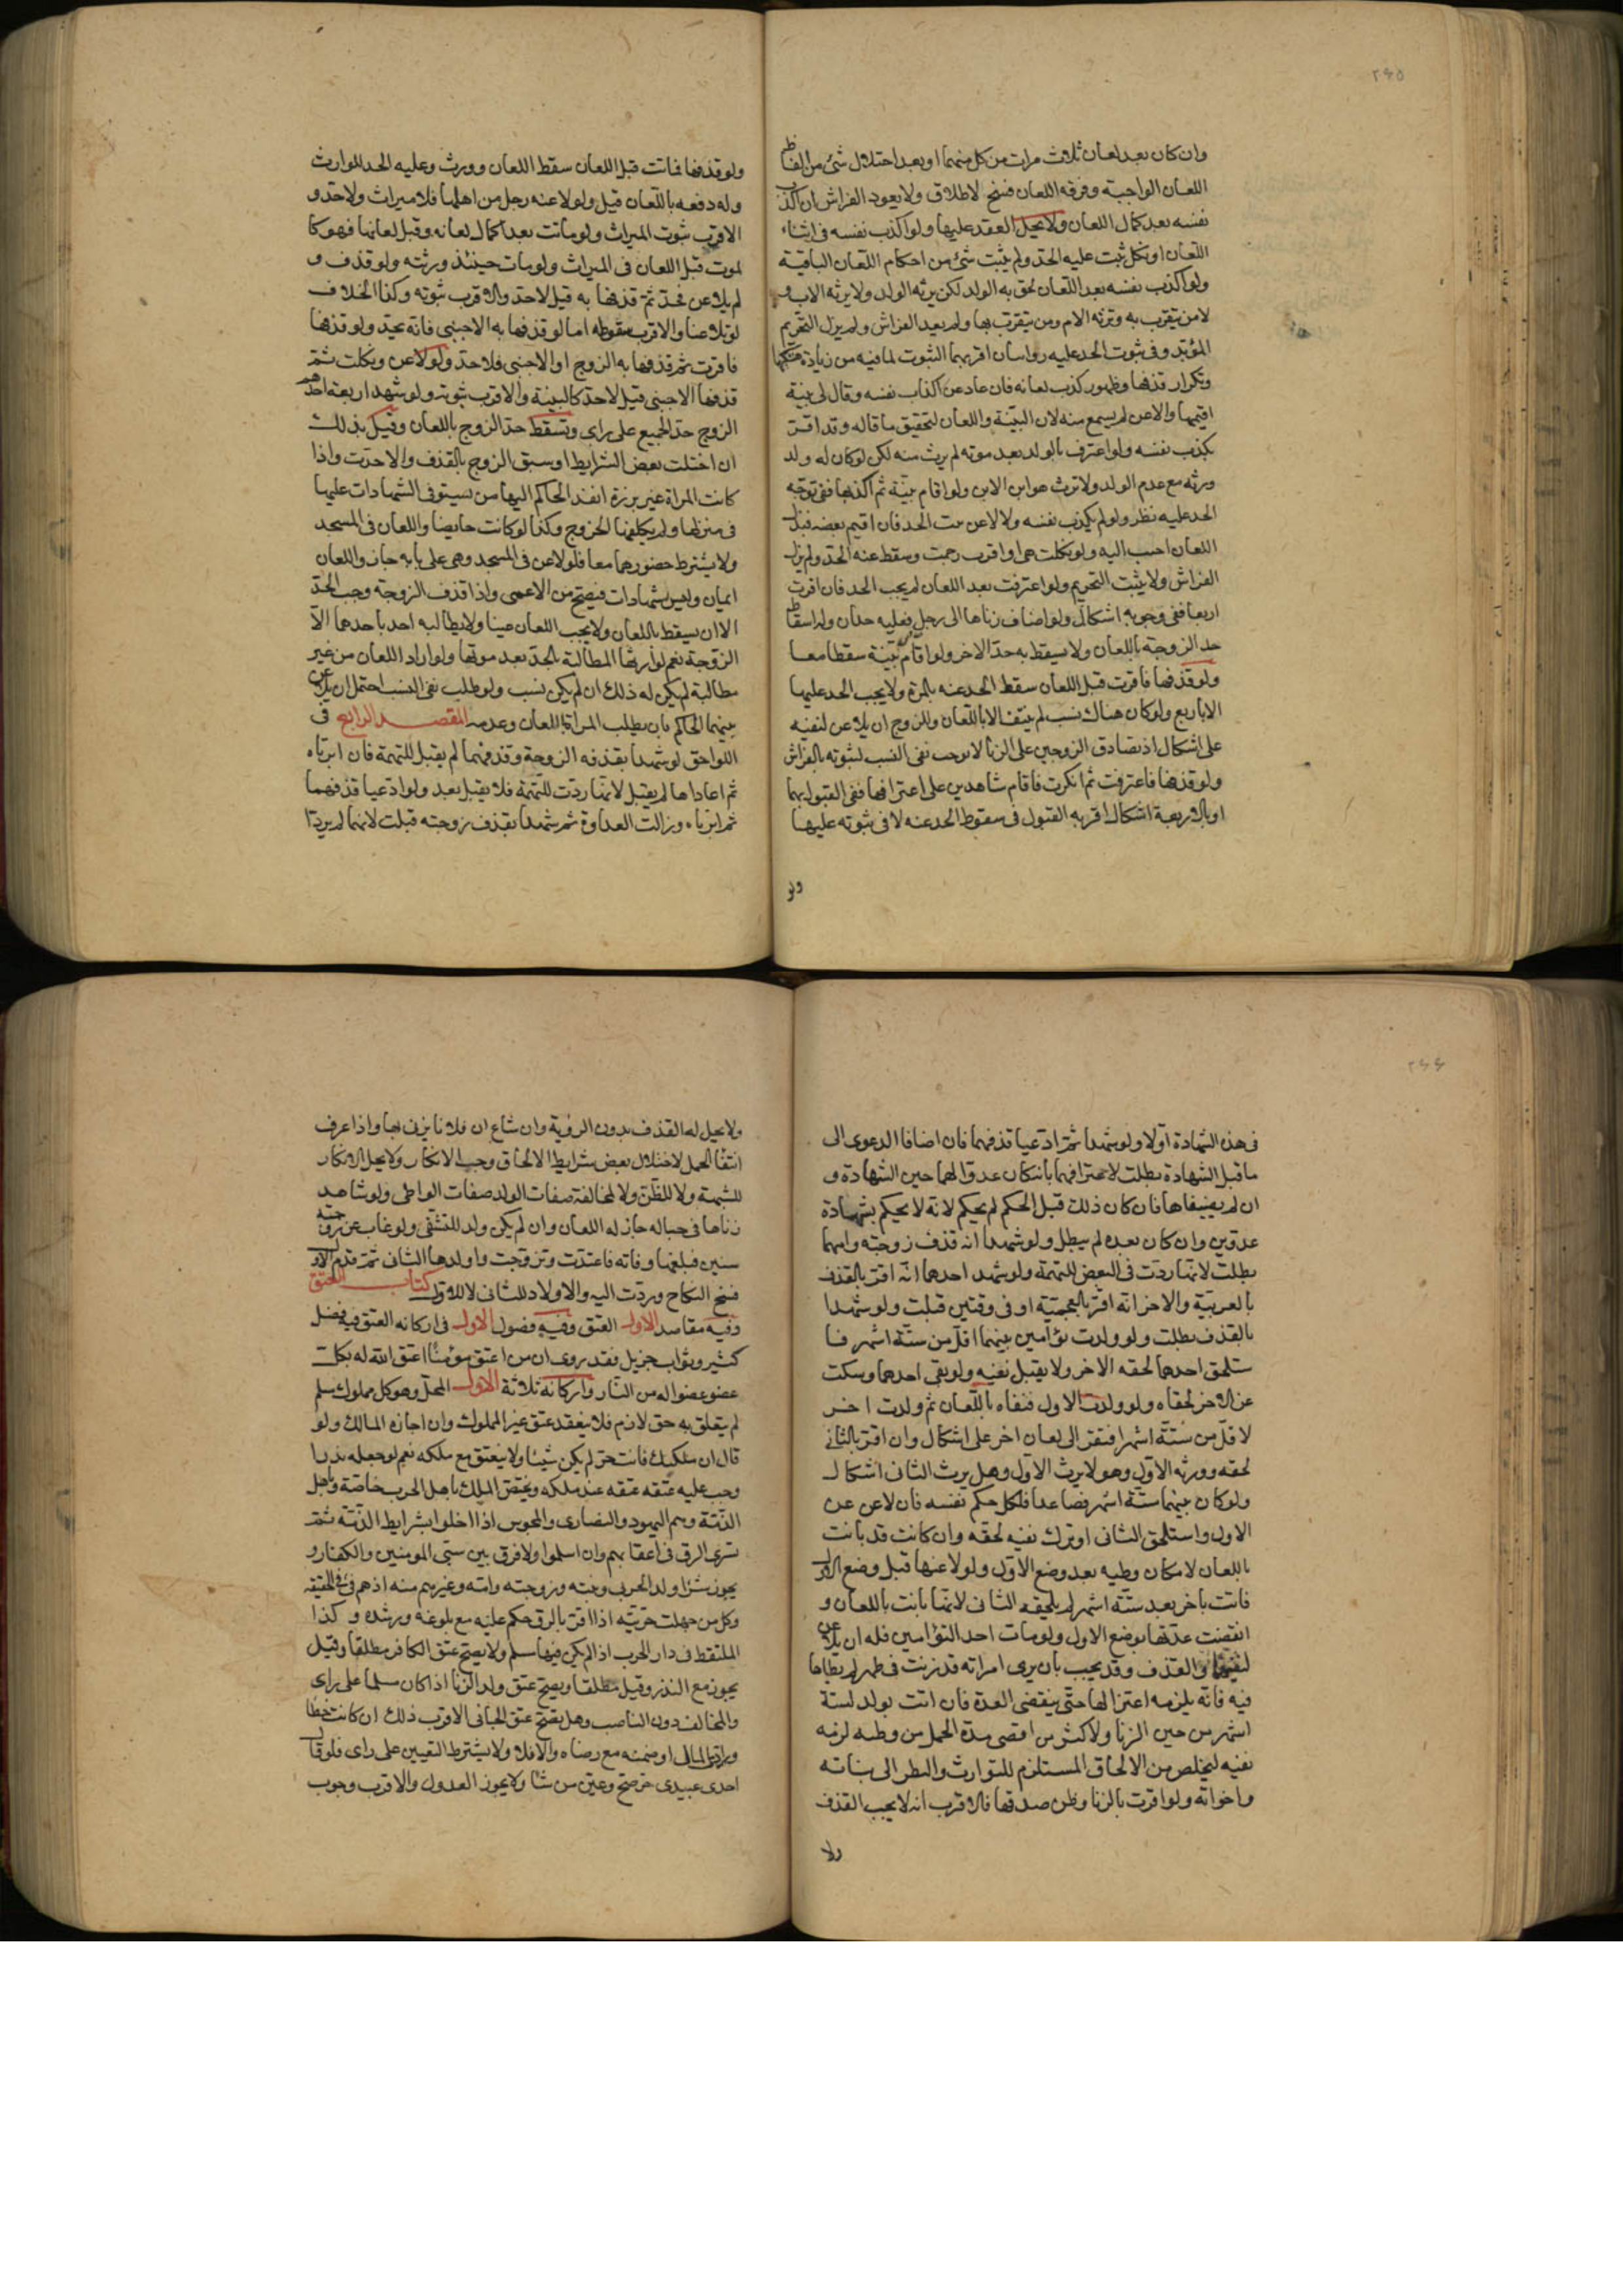 ٢٤٥
وان كان بعد لعان ثلاث مرات من كل منهما او بعد اختلال شئ من الفاظ
اللعان الواجبة وفرقه اللعان فسخ لا طلاق ولا يعود الفراش ان اكذب
نفسه بعد كمال اللعان ولا يحل العقد عليها ولو اكذب نفسه فى اثناء
اللعان او نكل ثبت عليه الحد ولم يثبت شئ من احكام اللعان الباقية
ولو اكذب نفسه بعد اللعان لحق به الولد لكن يرثه الولد ولا يرثه الاب و
لا من يتقرب به وترثه الام ومن يتقرب بها ولم يعد الفراش ولم يزل التحريم
المؤبد وفى ثبوت الحد عليه روايتان اقربهما الثبوت لما فيه من زيادة هتكها
وتكرار قذفها وظهور كذب لعانه فان عاد عن اكذاب نفسه وقال لى بينة
اقيمها والاعن لم يسمع منه لان البينة واللعان لتحقيق ما قاله وقد اقر
بكذب نفسه ولو اعترف بالولد بعد موته لم يرث منه لكن لو كان له ولد
ورثه مع عدم الولد ولا ترث هو ابن الابن ولو اقام بينة ثم اكذبها ففى توجه
الحد عليه نظر ولو لم يكذب نفسه ولا لاعن ثبت الحد فان اقيم بعضه فبذل
اللعان اجيب اليه ولو نكلت هى او اقرت رجمت وسقط عنه الحد ولم يزل
الفراش ولا يثبت التحريم ولو اعترفت بعد اللعان لم يجب الحد فان اقرت
اربعا ففى وجوبه اشكال ولو اضاف زناها الى رجل فعليه حدان وله اسقاط
حد الزوجة باللعان ولا يسقط به حد الاخر ولو اقام بينة سقطا معا
ولو قذفها فاقرت قبل اللعان سقط الحد عنه بالمرة ولا يجب الحد عليها
الا باربع ولو كان هناك نسب لم ينتف الا باللعان وللزوج ان يلاعن لنفيه
على اشكال اذ تصادق الزوجين على الزنا لا يوجب نفى النسب لثبوته بالفراش
ولو قذفها فاعترفت ثم انكرت فاقام شاهدين على اعترافها ففى القبول بهما
او بالاربعة اشكال اقربه القبول فى سقوط الحد عنه لا فى ثبوته عليها
ولو
ولو قذفها فماتت قبل اللعان سقط اللعان وورث وعليه الحد للوارث
وله دفعه باللعان قيل ولو لاعنه رجل من اهلها فلا ميراث ولا حد و
الاقرب ثبوت الميراث ولو ماتت بعد اكمال لعانه وقبل لعانها فهو كا
لموت قبل اللعان فى الميراث ولو مات حينئذ ورثته ولو قذف و
لم يلاعن فحد ثم قذفها به قيل لا حد والاقرب ثبوته وكذا الخلاف
لو تلاعنا والاقرب سقوطه اما لو قذفها به الاجنبى فانه يحد ولو قذفها
فاقرت ثم قذفها به الزوج او الاجنبى فلا حد ولو لاعن ونكلت ثم
قذفها الاجنبى قيل لا حد كالبينة والاقرب ثبوته ولو شهد اربعة احدهم
الزوج حد الجميع على راى وتسقط حد الزوج باللعان وقيل بذلك
ان اختلت بعض الشرايط او سبق الزوج بالقذف والا حدت واذا
كانت المراة غير برزة انفذ الحاكم اليها من يستوفى الشهادات عليها
فى منزلها ولم يكلفها الخروج وكذا لو كانت حايضا واللعان فى المسجد
ولا يشترط حضورهما معا فلو لاعن فى المسجد وهى على بابه جاز واللعان
ايمان وليس شهادات فيصح من الاعمى واذا قذف الزوجة وجب الحد
الا ان يسقط باللعان ولا يجب اللعان عينا ولا يطالبه احد باحدهما الا
الزوجة نعم لوارثها المطالبة بالحد بعد موتها ولو اراد اللعان من غير
مطالبة لم يكن له ذلك ان لم يكن نسب ولو طلب نفى النسب احتمل ان يلاعن
بينهما الحاكم بان يطلب المراة باللعان وعدمه المقصد الرابع فى
اللواحق لو شهدا بقذفه الزوجة وقذفهما لم يقبل للتهمة فان ابرءاه
ثم اعاداها لم يقبل لانها ردت للتهمة فلا يقبل بعد ولو ادعيا قذفهما
ثم ابرءاه وزالت العداوة ثم شهدا بقذف زوجته قبلت لانهما لم يردا
٢٤٤
فى هذه الشهادة اولا ولو شهدا ثم ادعيا قذفهما فان اضافا الدعوى الى
ما قبل الشهادة بطلت لاعترافهما بانه كان عدوا لهما حين الشهادة و
ان لم يضيفاها فان كان ذلك قبل الحكم لم يحكم لانه لا يحكم بشهادة
عدوين وان كان بعده لم يبطل ولو شهدا انه قذف زوجته وامهما
بطلت لانها ردت فى البعض للتهمة ولو شهد احدهما انه اقر بالقذف
بالعربية والاخر انه اقر بالعجمية او فى وقتين قبلت ولو شهدا
بالقذف بطلت ولو ولدت توامين بينهما اقل من ستة اشهر فا
ستلحق احدهما لحقه الاخر ولا يقبل نفيه ولو نفى احدهما وسكت
عن الاخر لحقاه ولو ولدت الاول فنفاه باللعان ثم ولدت اخر
لاقل من ستة اشهر افتقر الى لعان اخر على اشكال وان اقر بالثانى
لحقه وورثه الاول وهو لا يرث الاول وهل يرث الثانى اشكال
ولو كان بينهما ستة اشهر فصاعدا فلكل حكم نفسه فان لاعن عن
الاول واستلحق الثانى او ترك نفيه لحقه وان كانت قد بانت
باللعان لامكان وطيه بعد وضع الاول ولو لاعنها قبل وضع الاول
فاتت باخر بعد ستة اشهر لم يلحقه الثانى لانها بانت باللعان و
انقضت عدتها بوضع الاول ولو مات احد التوامين فله ان يلاعن
لنفيهما والقذف وقد يجب بان يرى امراته قد زنت فى طهر لم يطاها
فيه فانه يلزمه اعتزالها حتى ينقضى العدة فان اتت بولد لستة
اشهر من حين الزنا ولاكثر من اقصى مدة الحمل من وطئه لزمه
نفيه ليخلص من الالحاق المستلزم للتوارث والنظر الى بناته
واخواته ولو اقرت بالزنا وظن صدقها فالاقرب انه لا يجب القذف
ولا
ولا يحل له القذف بدون الرؤية وان شاع ان فلانا يزنى بها واذا عرف
انتفا الحمل لاختلال بعض شرايط الالحاق وجب الانكار ولا يحل الانكار
للشبهة ولا للظن ولا لمخالفة صفات الولد صفات الواطى ولو شاهد
زناها فى حباله جاز له اللعان وان لم يكن ولد للتشفى ولو غاب عن زوجته
سنين فبلغها وفاته فاعتدت وتزوجت واولدها الثانى ثم قدم الاول
فسخ النكاح وردت اليه والاولاد للثانى لا للاول كتاب العتق
وفيه مقاصد الاول العتق وفيه فصول الاول فى اركانه العتق فيه فضل
كثير وثواب جزيل فقد روى ان من اعتق مؤمنا اعتق الله له بكل
عضو عضوا له من النار واركانه ثلاثة الاول المحل وهو كل مملوك مسلم
لم يتعلق به حق لازم فلا ينعقد عتق غير المملوك وان اجازه المالك ولو
قال ان ملكتك فانت حر لم يكن شيئا ولا ينعتق مع ملكه نعم لو جعله نذرا
وجب عليه عتقه عند ملكه ويختص الملك باهل الحرب خاصة وباهل
الذمة وهم اليهود والنصارى والمجوس اذا اخلوا بشرايط الذمة ثم
يسرى الرق فى اعقابهم وان اسلموا ولا فرق بين سبى المومنين والكفار و
يجوز شرا ولد الحربى وبنته وزوجته وامته وغيرهم منه اذ هم فى فى الحقيقة
وكل من جهلت حريته اذا اقر بالرق حكم عليه مع بلوغه ورشده وكذا
الملتقط فى دار الحرب اذا لم يكن فيها مسلم ولا يصح عتق الكافر مطلقا وقيل
يجوز مع النذر وقيل مطلقا ويصح عتق ولد الزنا اذا كان مسلما على راى
والمخالف دون الناصب وهل يصح عتق الجانى الاقرب ذلك ان كانت خطا
وادى المال او ضمنه مع رضاه والا فلا ولا يشترط التعيين على راى فلو قال
احدى عبيدى حر صح وعين من شا ولا يجوز العدول والاقرب وجوب